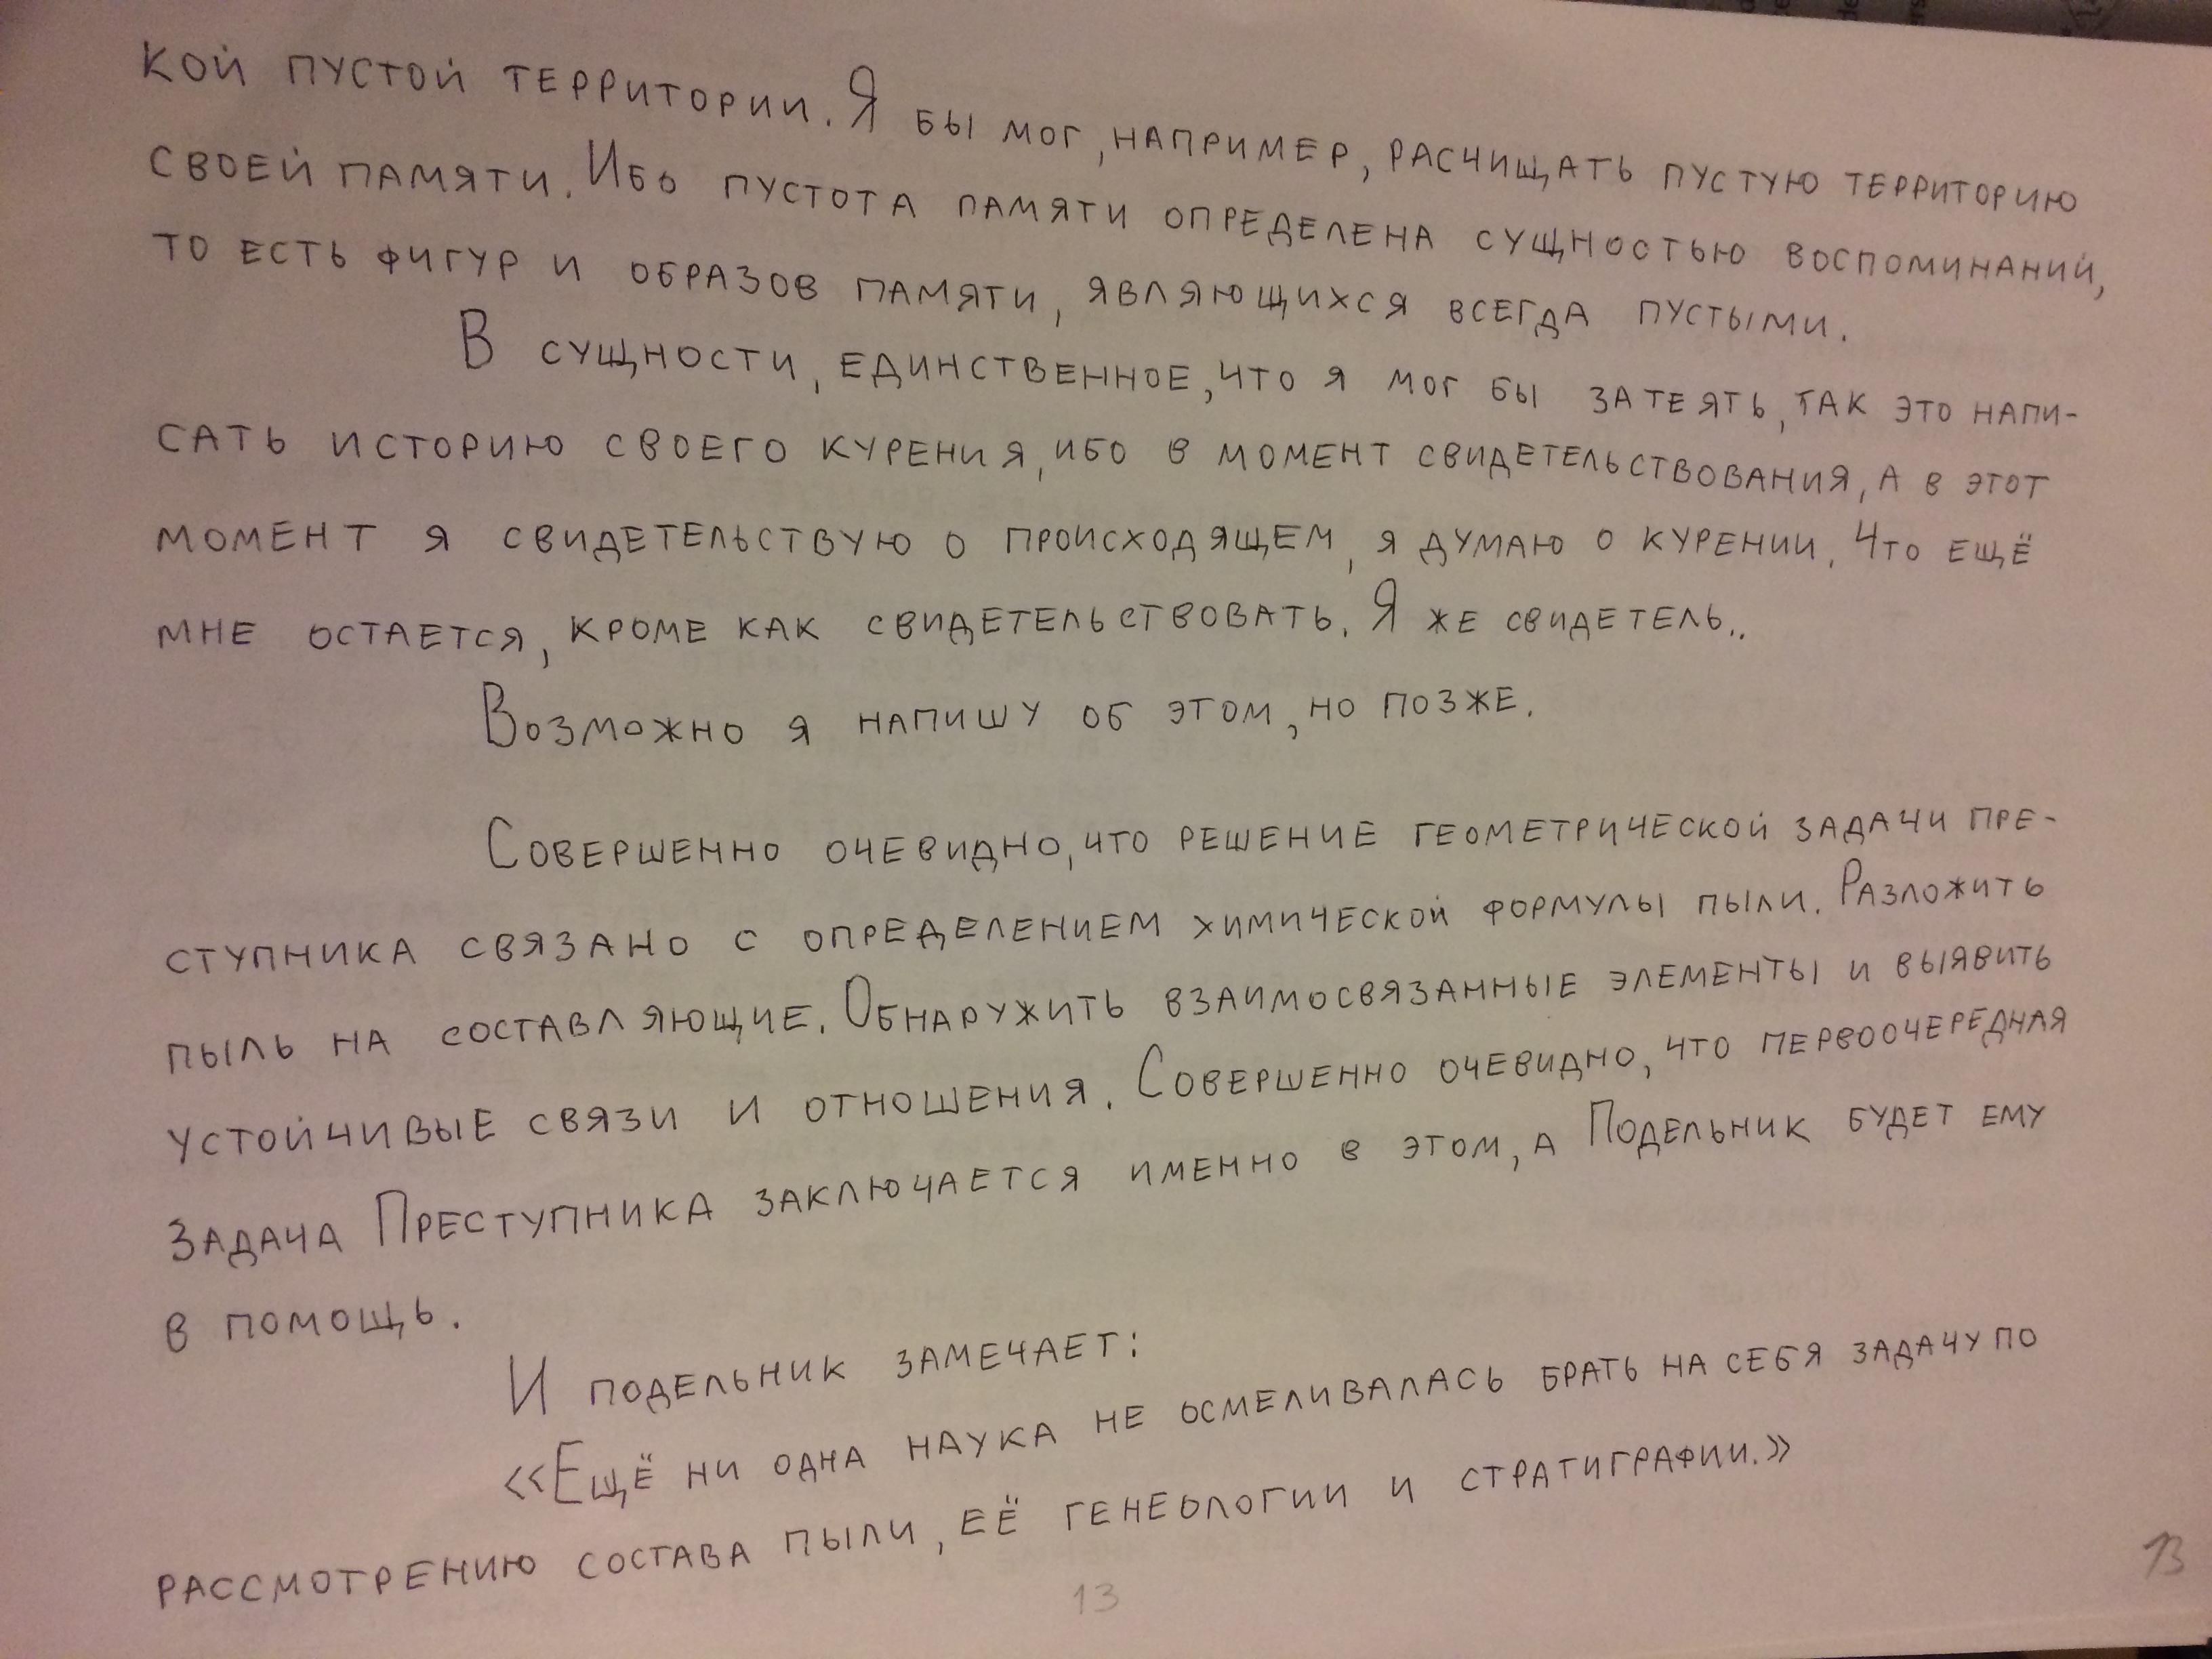 кой пустой территории. Я бы мог, например, расчищать пустую территорию
своей памяти. Ибо пустота памяти определена сущностью воспоминаний,
то есть фигур и образов памяти, являющихся всегда пустыми.
В сущности, единственное, что я мог бы затеять, так это напи-
сать историю своего курения, ибо в момент свидетельствования, а в этот
момент я свидетельствую о происходящем, я думаю о курении. Что ещё
мне остается, кроме как свидетельствовать. Я же свидетель..
Возможно я напишу об этом, но позже.
Совершенно очевидно, что решение геометрической задачи пре-
ступника связано с определением химической формулы пыли. Разложить
пыль на составляющие. Обнаружить взаимосвязанные элементы и выявить
устойчивые связи и отношения. Совершенно очевидно, что первоочередная
задача Преступника заключается именно в этом, а Подельник будет ему
в помощь.
И подельник замечает:
«Ещё ни одна наука не осмеливалась брать на себя задачу по
рассмотрению состава пыли, её генеологии и стратиграфии.»
13
13